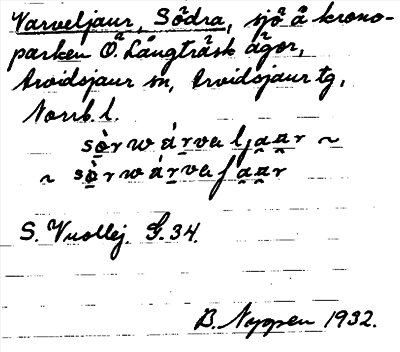 Varveljaur, Södra, sjö å krono-
parken Ö. Långträsk ägor,
Arvidsjaur sn, Arvidsjaur tg,
Norrb. l.
sò̱r w árvalja̮a̮r ~
~ sò̱r w árva a̮a̮r
S. Vuollej. G.34.
B. Nyppen 1932.